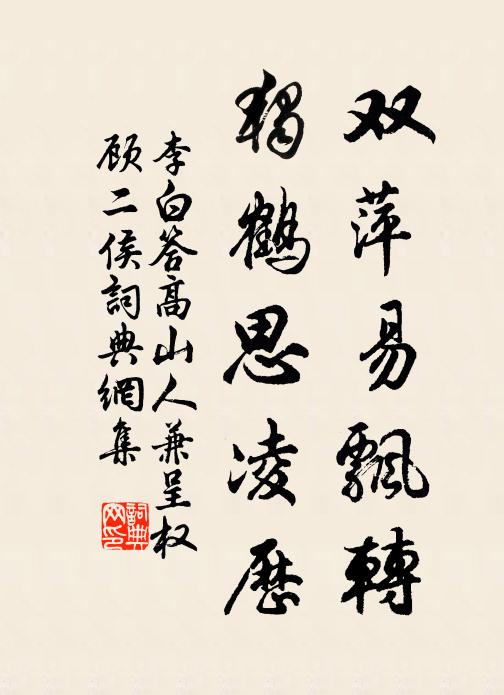 双萍易飘轉
独鹤思凌历
李白答高山人兼呈权
顾二侯詞典網集
詞典网印